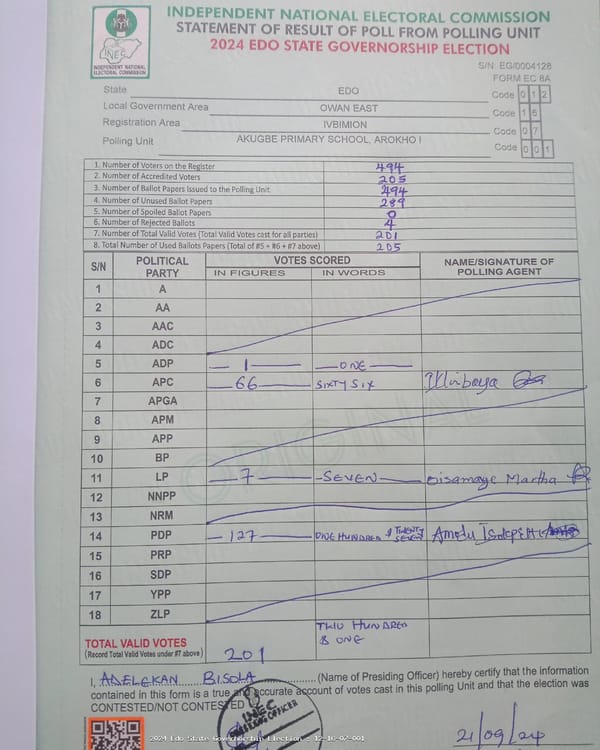 INDEPENDENT NATIONAL ELECTORAL COMMISSION
STATEMENT OF RESULT OF POLL FROM POLLING UNIT
2024 EDO STATE GOVERNORSHIP ELECTION
INEC
INDEPENDENT NATIONAL
ELECTORAL COMMISSION
S/N EG/0004128
FORM EC 8A
State EDO Code 0 1 2
Local Government Area OWAN EAST Code 1 6
Registration Area IVBIMION Code 0 7
Polling Unit AKUGBE PRIMARY SCHOOL, AROKHO I Code 0 0 1
1. Number of Voters on the Register 494
2. Number of Accredited Voters 205
3. Number of Ballot Papers Issued to the Polling Unit 494
4. Number of Unused Ballot Papers 289
5. Number of Spoiled Ballot Papers 0
6. Number of Rejected Ballots 4
7. Number of Total Valid Votes (Total Valid Votes cast for all parties) 201
8. Total Number of Used Ballots Papers (Total of #5 + #6 + #7 above) 205
S/N POLITICAL PARTY VOTES SCORED NAME/SIGNATURE OF POLLING AGENT
IN FIGURES IN WORDS
1 A
2 AA
3 AAC
4 ADC
5 ADP 1 ONE
6 APC 66 SIXTY SIX
7 APGA
8 APM
9 APP
10 BP
11 LP 7 SEVEN Oisamaye Martha
12 NNPP
13 NRM
14 PDP 127 ONE HUNDRED & TWENTY SEVEN Amedu
15 PRP
16 SDP
17 YPP
18 ZLP
TOTAL VALID VOTES 201 TWO HUNDRED & ONE
(Record Total Valid Votes under #7 above)
ORIGINAL
I, ADELEKAN BISOLA (Name of Presiding Officer) hereby certify that the information
contained in this form is a true and accurate account of votes cast in this polling Unit and that the election was
CONTESTED/NOT CONTESTED
INEC
PRESIDING OFFICER
21/09/24
2024 Edo State Governorship Election - 12-16-07-001